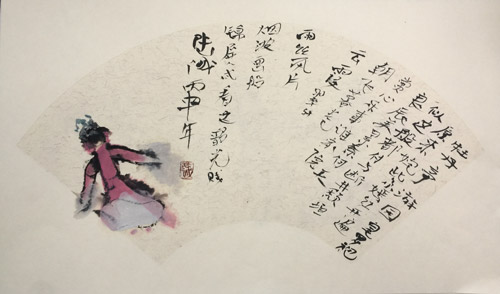 牡丹
亭游园皂罗袍
原来姹紫嫣红开遍
似这般都付与断井颓垣
良辰美景奈何天
赏心乐事谁家院
朝飞暮卷
云霞翠轩
雨丝风片
烟波画船
锦屏人忒看这韶光贱
丙申年